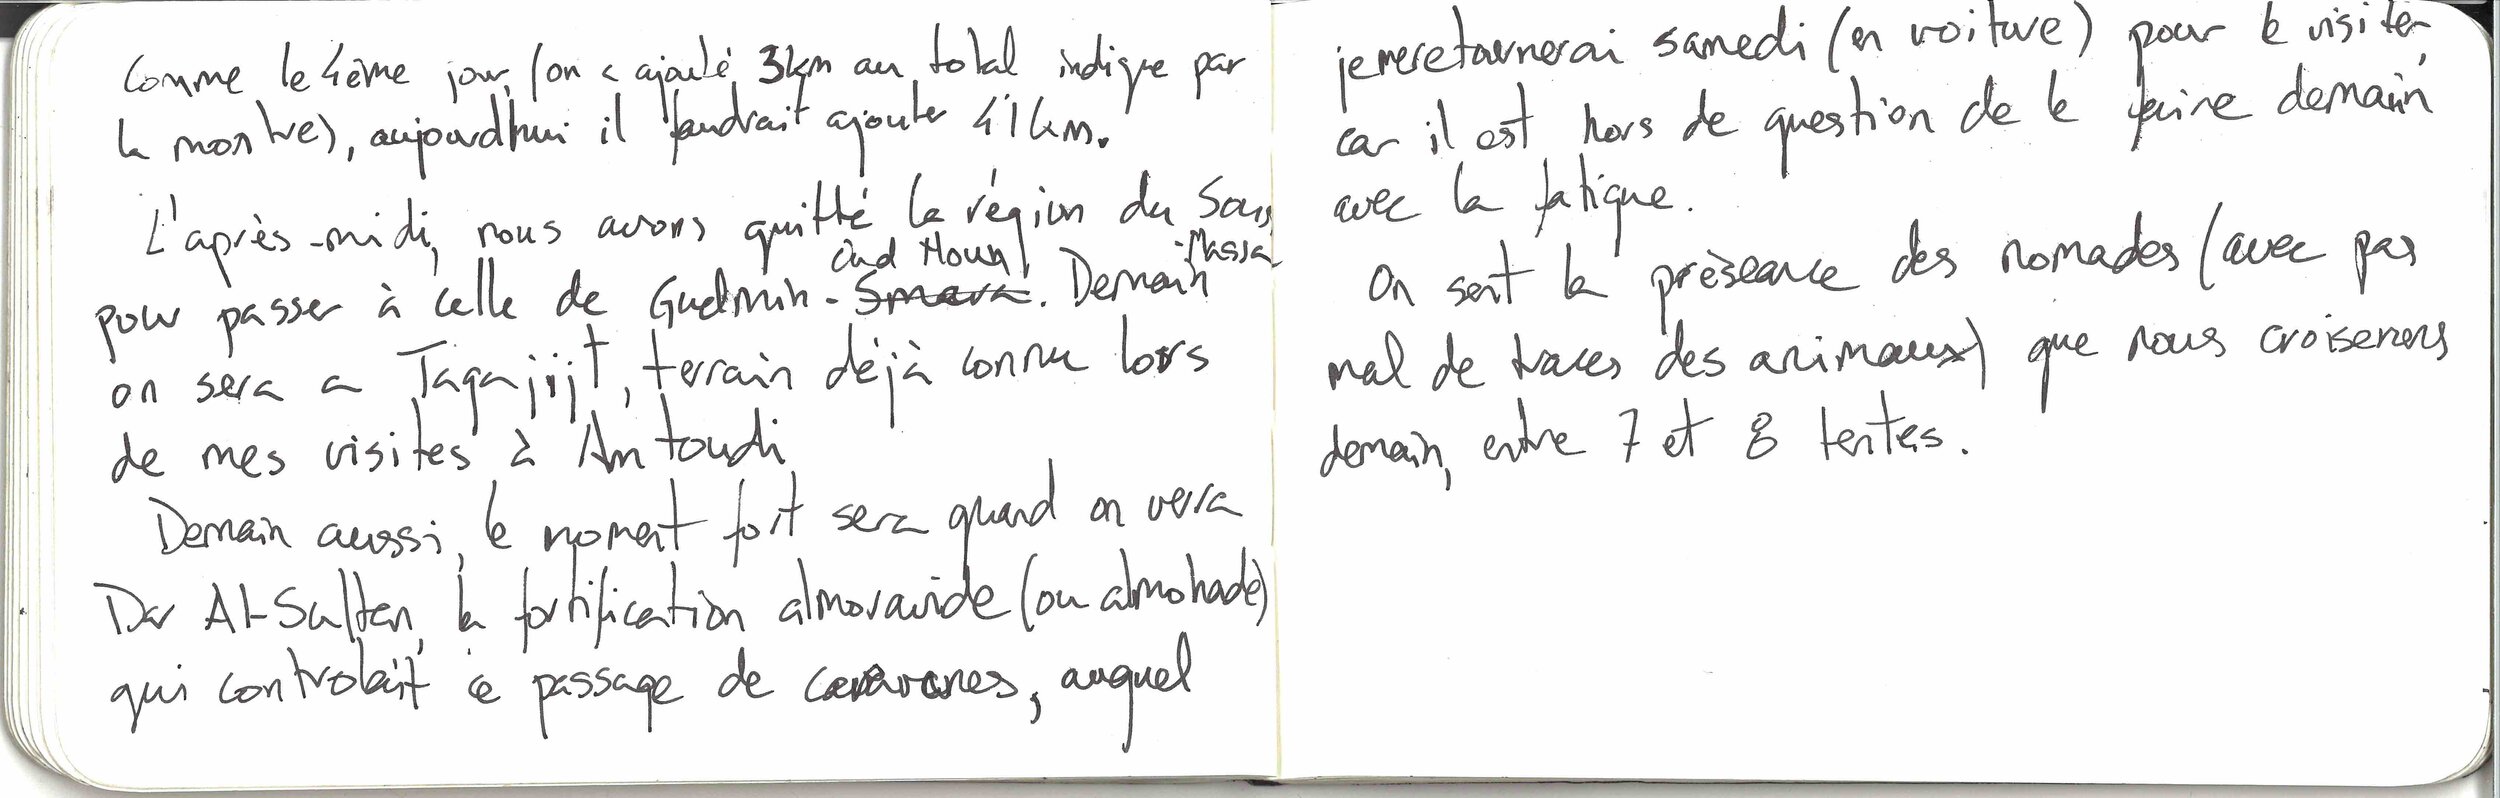 Comme le 4ème jour, (on a ajouté 3km au total indique par
la montre), aujourd'hui il faudrait ajouter 4'1km.
L'après-midi, nous avons quitté la région du Souss
-Massa
pour passer à celle de Guelmin - Smara. Demain
Oud Noun
on sera a Tagajijt, terrain déjà connu lors
de mes visites à Amtoudi
Demain aussi, le moment fort sera quand on verra
Dar Al-Sultan, la fortification almoravide (ou almohade)
qui controlait ce passage de caravanes, auquel
je me retournerai samedi (en voiture) pour le visiter,
car il est hors de question de le faire demain
avec la fatigue.
On sent la présence des nomades (avec pas
mal de traces des animaux) que nous croiserons
demain, entre 7 et 8 tentes.